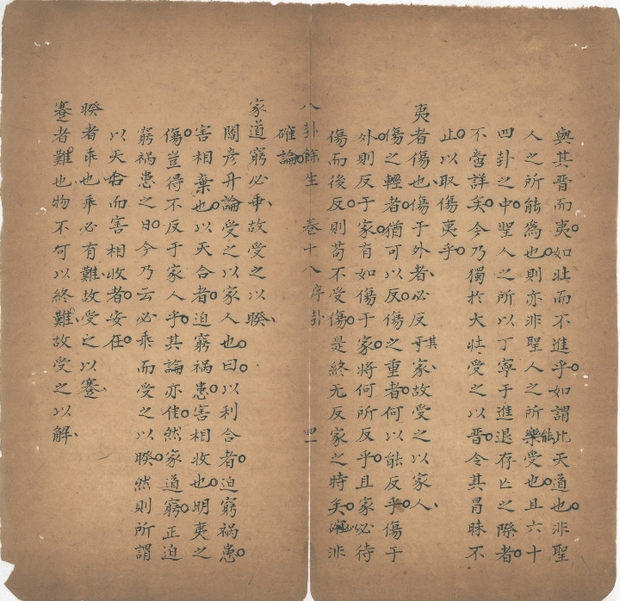 與其晋而夷如壯而不進乎如謂比天道也非聖
人之所能為也則亦非聖人之所能樂受也且六十
四卦之中聖人之所以丁寧于進退存亡之際者
不啻詳矣今乃獨於大壮受之以晋令其冐昧不
止以取傷夷乎
夷者傷也傷于外者必反于其家故受之以家人
傷之輕者猶可以反傷之重者何以能反乎傷于
外則反于家有如傷于家將何所反乎且家必待
傷而後反則苟不受傷是終无反家之時矣必非
確論
八卦餘生 卷十八序卦 四一
家道窮必乖故受之以睽
閻彦升論受之以家人也曰以利合者迫窮禍患
害相棄也以天合者迫窮禍患害相收也明夷之
傷豈得不反于家人乎其論亦佳然家道窮正迫
窮禍患之日今乃云必乖而受之以睽然則所謂
以天合而害相收者安在
睽者乖也乖必有難故受之以蹇
蹇者難也物不可以終難故受之以解